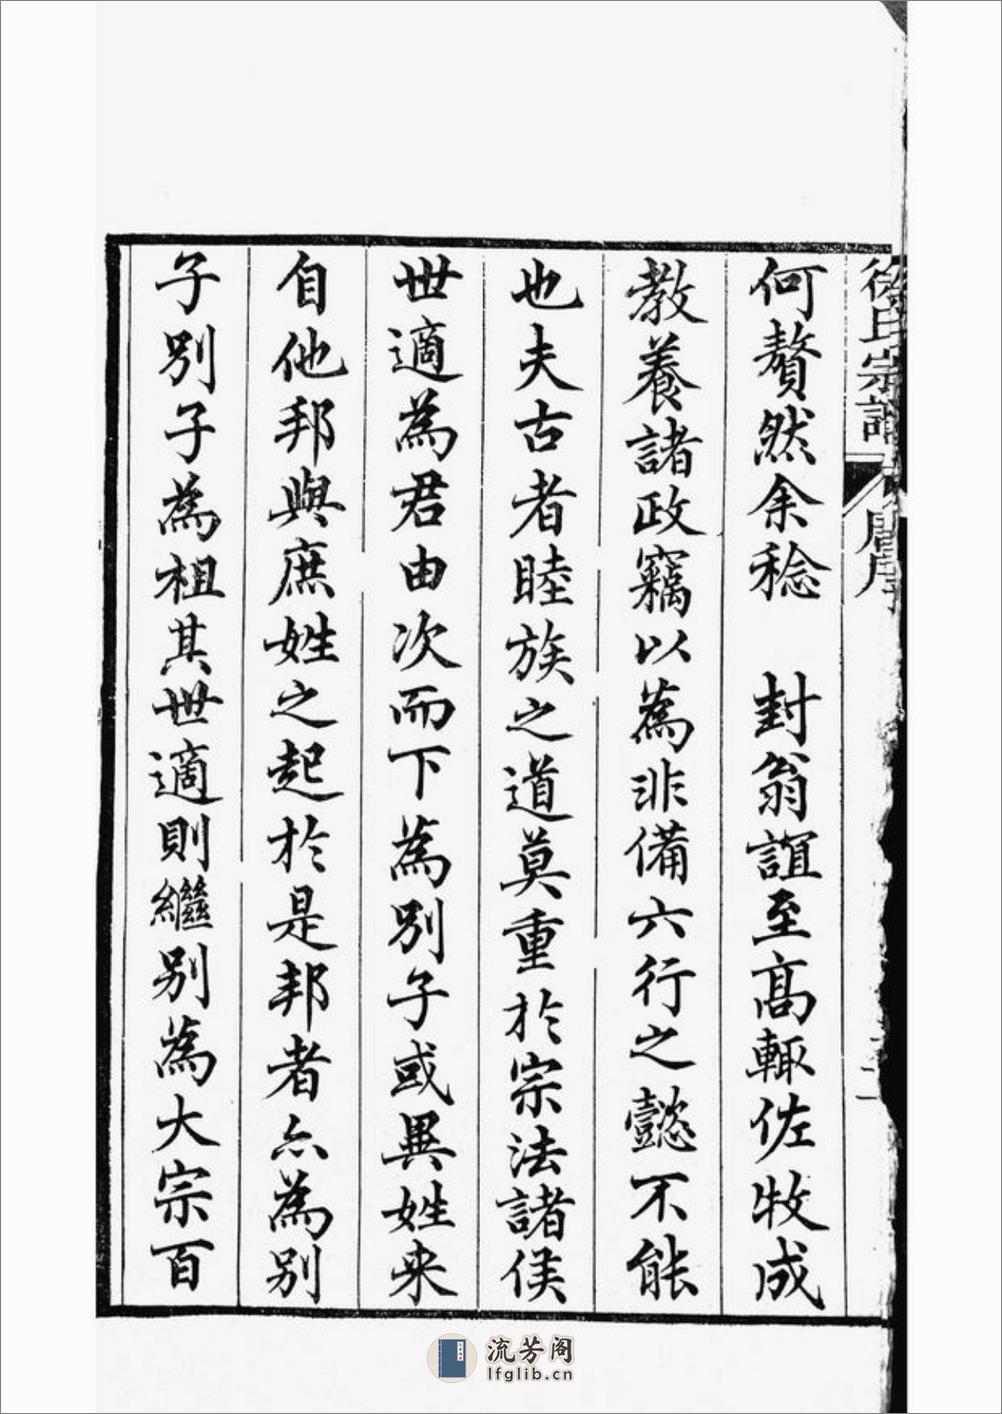 徐氏宗譜
唐序
二
何贅然余稔　封翁誼至高輒佐牧成
教養諸政竊以為非備六行之懿不能
也夫古者睦族之道莫重於宗法諸侯
世適為君由次而下為別子或異姓来
自他邦與庶姓之起於是邦者亦為別
子別子為祖其世適則繼別為大宗百
流芳阁
lfglib.cn